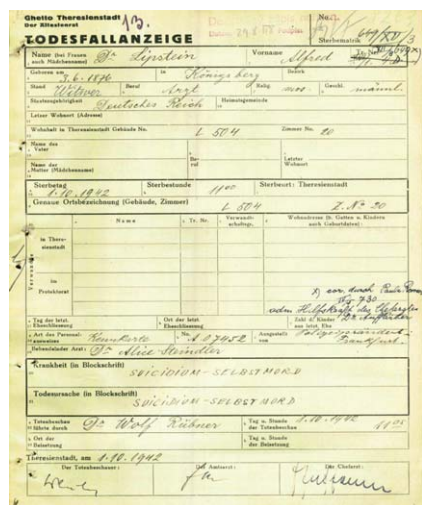 Ghetto Theresienstadt
Der Ältestenrat
13.
No.
TODESFALLANZEIGE
Sterbematrik
Name (bei Frauen auch Mädchenname) Dr Lipstein Vorname Alfred Tr. Nr.
Geboren am 8.6.1876 in Königsberg Bezirk
Stand Witwer Beruf Arzt Relig. mos. Geschl. männl.
Staatszugehörigkeit Deutsches Reich Heimatsgemeinde
Letzer Wohnort (Adresse)
Wohnhaft in Theresienstadt Gebäude No. L 504 Zimmer No. 20
Name des Vater Beruf Letzter Wohnort
Name der Mutter (Mädchenname)
Sterbetag 1.10.1942 Sterbestunde 11 00 Sterbeort: Theresienstadt
Genaue Ortsbezeichnung (Gebäude, Zimmer) L 504 Z. No 20
Name Tr. Nr. Verwandtschaftsgr. Wohnadresse (b. Gatten u. Kindern auch Geburtsdaten)
Verwandte
in Theresienstadt
im Protektorat
Tag der letzt. Eheschliessung Ort der letzt. Eheschliessung Zahl d. Kinder aus letzt. Ehe
Art des Personalausweises Kennkarte No. A 07452 Ausgestellt von Polizeipräsident Frankfurt
Behandelnder Arzt Dr Alice Steindler
Krankheit (in Blockschrift)
SUICIDIUM - SELBSTMORD
Todesursache (in Blockschrift)
SUICIDIUM - SELBSTMORD
Totenbeschau führte durch Dr Wolf Rübner Tag u. Stunde der Totenbeschau 1.10.1942
Ort der Beisetzung Tag u. Stunde der Beisetzung
Theresienstadt, am 1.10.1942
Der Totenbeschauer: Der Amtsarzt: Der Chefarzt: